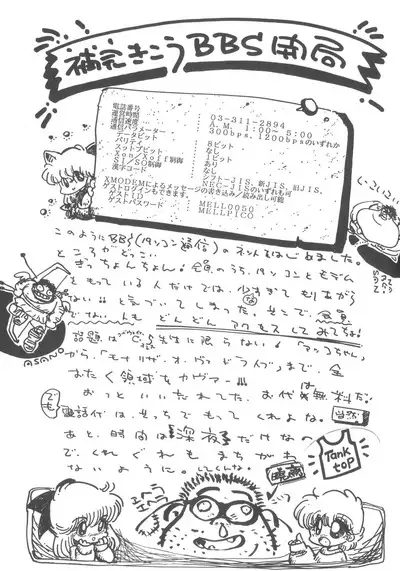 補完きこうBBS開局
電話番号 : 03-311-2894
運営時間 : A.M. 1:00~5:00
通信速度 : 300bps. 1200bpsのいずれか
通信パラメーター
データビット : 8ビット
パリティ : なし
ストップビット : 1ビット
Xon/Xoff制御 : あり
SI/SO制御 : なし
漢字コード : シフトJIS、新JIS、旧JIS、
NEC-JISのいずれも可
XMODEMによるメッセージの書き込み/読み出し可能
ゲストログインもできます。
ゲストID : MELL0050
ゲストパスワード : MELLPICO
このようにBBS(パソコン通信)のネットはじめました。
ところがどっこい
きっちょんちょん!会員のうち、パソコンとモデム
ともっている人だけでは、少なすぎてもりあがら
ない!!と気づいてしまった。そこで、会員
でない人もどんどんアクセスしてみてちょ!
話題は 先生に限らない!「アッコちゃん」
から「モナリザ・オーヴァドライブ」まで、全
おたく領域をカヴァー!!!
おっといいわすれてた。お代は無料だ。
でも電話代は、そっちでもってくれよな。当然
あと、時間は深夜だけなの
で、くれぐれもまちがわ
ないように。してくんな。
Tank top
ASANO
エヘラ
エヘラ